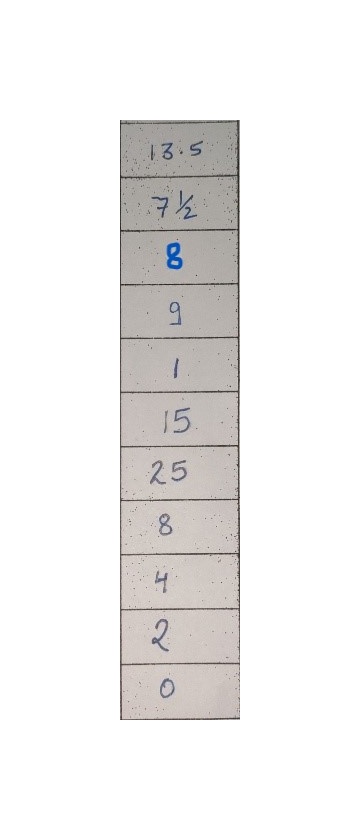 13.5
7 ½
8
9
1
15
25
8
4
2
0